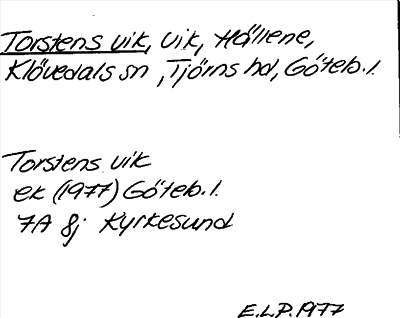 Torstens vik, Vik, Hällene,
Klövedals sn, Tjörns hd, Göteb. l.
Torstens vik
ek (1977) Göteb. l.
7A 8j Kyrkesund
E.L.P. 1977